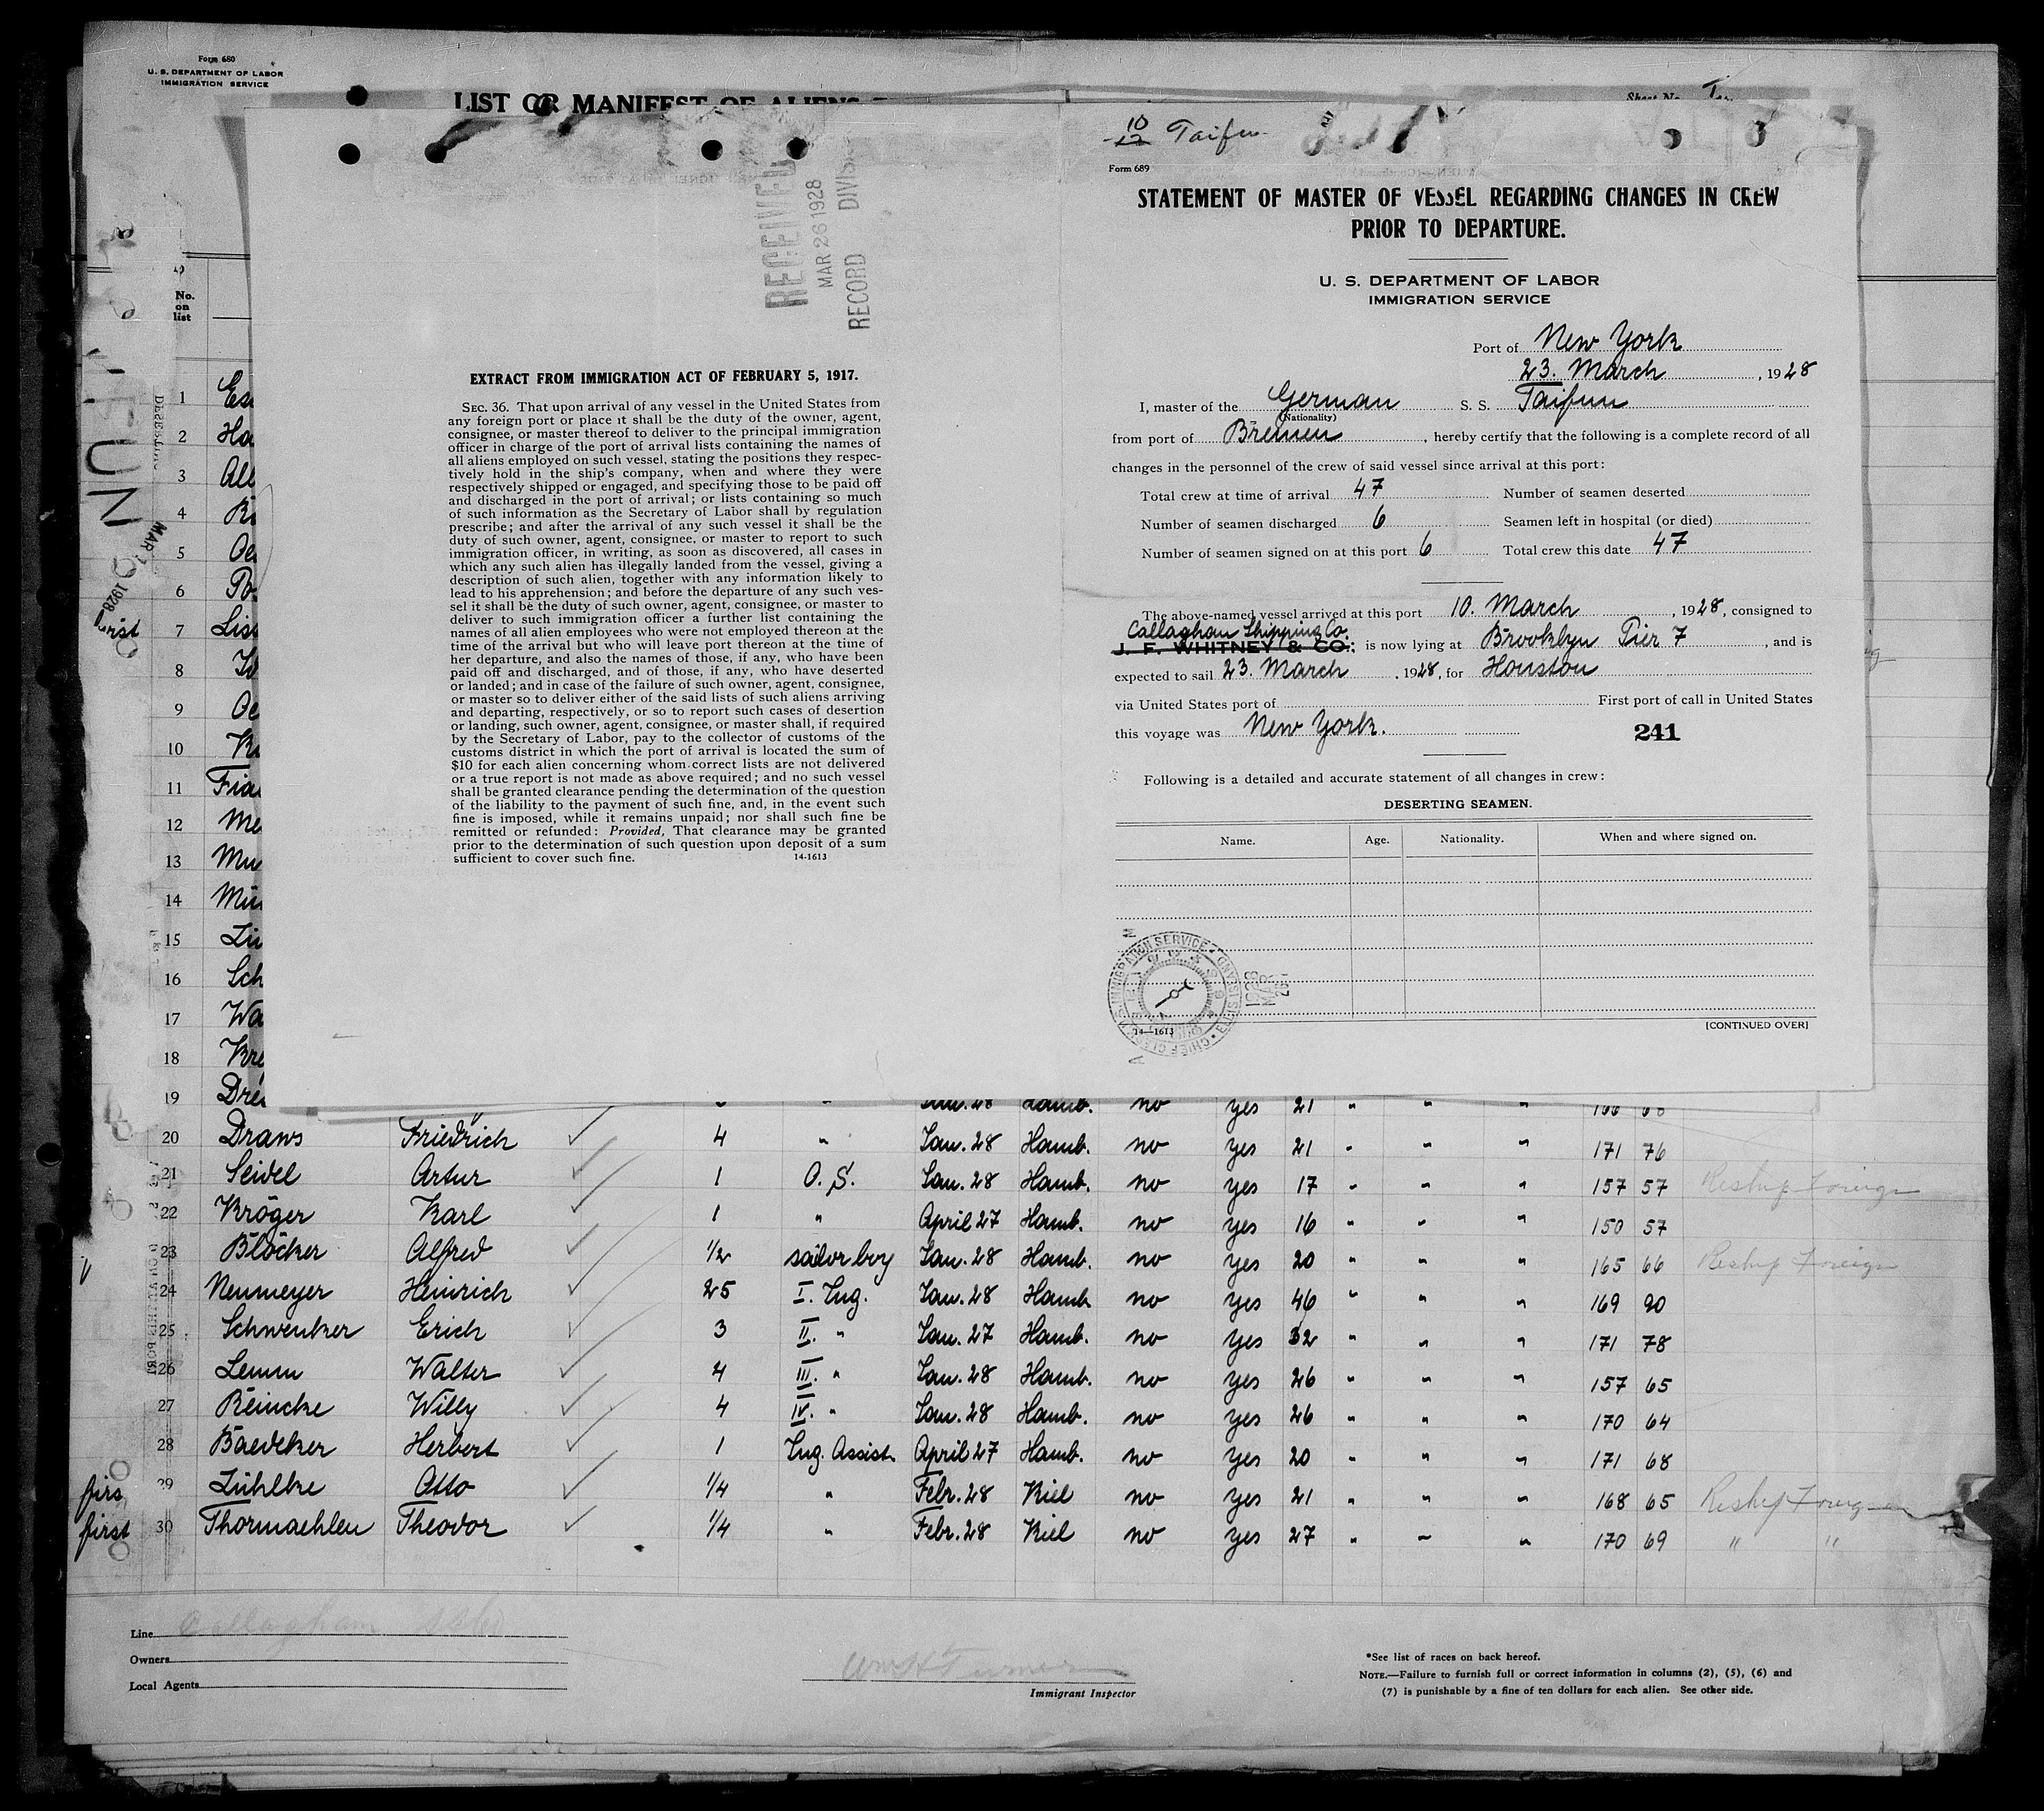 Form 680
U. S. DEPARTMENT OF LABOR
IMMIGRATION SERVICE
LIST OR MANIFEST OF ALIENS
Sheet No.
No.
on
list
RECEIVED
MAR 26 1928
RECORD DIVISION
EXTRACT FROM IMMIGRATION ACT OF FEBRUARY 5, 1917.
SEC. 36. That upon arrival of any vessel in the United States from
any foreign port or place it shall be the duty of the owner, agent,
consignee, or master thereof to deliver to the principal immigration
officer in charge of the port of arrival lists containing the names of
all aliens employed on such vessel, stating the positions they respec-
tively hold in the ship's company, when and where they were
respectively shipped or engaged, and specifying those to be paid off
and discharged in the port of arrival; or lists containing so much
of such information as the Secretary of Labor shall by regulation
prescribe; and after the arrival of any such vessel it shall be the
duty of such owner, agent, consignee, or master to report to such
immigration officer, in writing, as soon as discovered, all cases in
which any such alien has illegally landed from the vessel, giving a
description of such alien, together with any information likely to
lead to his apprehension; and before the departure of any such ves-
sel it shall be the duty of such owner, agent, consignee, or master to
deliver to such immigration officer a further list containing the
names of all alien employees who were not employed thereon at the
time of the arrival but who will leave port thereon at the time of
her departure, and also the names of those, if any, who have been
paid off and discharged, and of those, if any, who have deserted
or landed; and in case of the failure of such owner, agent, consignee,
or master so to deliver either of the said lists of such aliens arriving
and departing, respectively, or so to report such cases of desertion
or landing, such owner, agent, consignee, or master shall, if required
by the Secretary of Labor, pay to the collector of customs of the
customs district in which the port of arrival is located the sum of
$10 for each alien concerning whom correct lists are not delivered
or a true report is not made as above required; and no such vessel
shall be granted clearance pending the determination of the question
of the liability to the payment of such fine, and, in the event such
fine is imposed, while it remains unpaid; nor shall such fine be
remitted or refunded: Provided, That clearance may be granted
prior to the determination of such question upon deposit of a sum
sufficient to cover such fine.
14-1613
10
12 Taifun
Form 689
STATEMENT OF MASTER OF VESSEL REGARDING CHANGES IN CREW
PRIOR TO DEPARTURE.
U. S. DEPARTMENT OF LABOR
IMMIGRATION SERVICE
Port of New York
23. March, 1928
I, master of the German S. S. Taifun
(Nationality)
from port of Bremen, hereby certify that the following is a complete record of all
changes in the personnel of the crew of said vessel since arrival at this port:
Total crew at time of arrival 47 Number of seamen deserted
Number of seamen discharged 6 Seamen left in hospital (or died)
Number of seamen signed on at this port 6 Total crew this date 47
The above-named vessel arrived at this port 10. March, 1928, consigned to
Callaghan Shipping Co.
J. F. WHITNEY & CO.; is now lying at Brooklyn Pier 7, and is
expected to sail 23. March, 1928, for Houston
via United States port of First port of call in United States
this voyage was New York.
241
Following is a detailed and accurate statement of all changes in crew:
DESERTING SEAMEN.
Name. Age. Nationality. When and where signed on.
14-1613
[CONTINUED OVER]
1
2
3
4
5
6
7
8
9
10
11
12
13
14
15
16
17
18
19 Jan. 28 Hamb. no yes 21 " " "
20 Draws Friedrich 4 " Jan. 28 Hamb. no yes 21 " " " 171 76
21 Seidel Artur 1 O. S. Jan. 28 Hamb. no yes 17 " " " 157 57 Reship Foreign
22 Kröger Karl 1 " April 27 Hamb. no yes 16 " " " 150 57
23 Blöcker Alfred 1/2 sailorboy Jan. 28 Hamb. no yes 20 " " " 165 66 Reship Foreign
24 Neumeyer Heinrich 25 I. Ing. Jan. 28 Hamb. no yes 46 " " " 169 90
25 Schwenker Erich 3 II. " Jan. 27 Hamb. no yes 32 " " " 171 78
26 Lemm Walter 4 III. " Jan. 28 Hamb. no yes 26 " " " 157 65
27 Reincke Willy 4 IV. " Jan. 28 Hamb. no yes 26 " " " 170 64
28 Baedeker Herbert 1 Ing. Assist. April 27 Hamb. no yes 20 " " " 171 68
29 Lühlke Otto 1/4 " Febr. 28 Kiel no yes 21 " " " 168 65 Reship Foreign
first 30 Thormaehlen Theodor 1/4 " Febr. 28 Kiel no yes 27 " " " 170 69 " "
Line Callaghan
Owners
Local Agents
Wm H Turner
Immigrant Inspector
*See list of races on back hereof.
NOTE.—Failure to furnish full or correct information in columns (2), (5), (6) and
(7) is punishable by a fine of ten dollars for each alien. See other side.